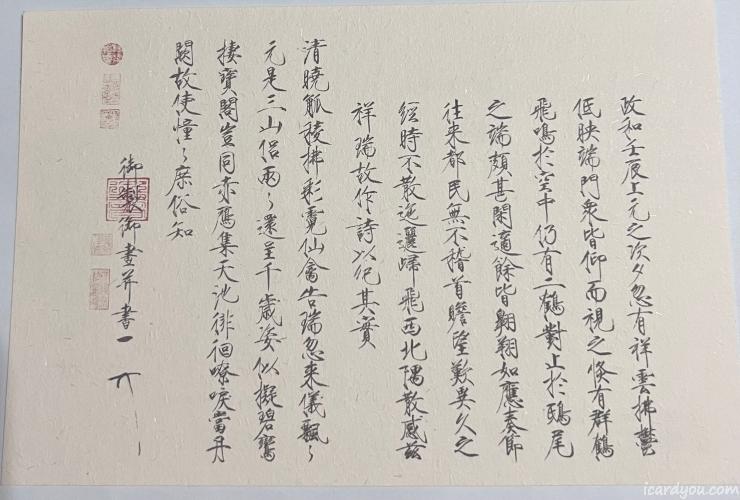 政和壬辰上元之次夕忽有祥雲拂鬱
低映端門衆皆仰而視之倏有群鶴
飛鳴於空中仍有二鶴對止於鴟尾
之端頗甚閑適餘皆翱翔如應奏節
往來都民無不稽首瞻望歎異久之
經時不散迤邐歸飛西北隅散感茲
祥瑞故作詩以紀其實
清曉觚稜拂彩霓仙禽告瑞忽來儀飄〻
元是三山侶兩〻還呈千歲姿似擬碧鸞
棲寶閣豈同赤鴈集天池徘徊嘹唳當丹
闕故使憧〻庶俗知
御製御畫并書
icardyou.com